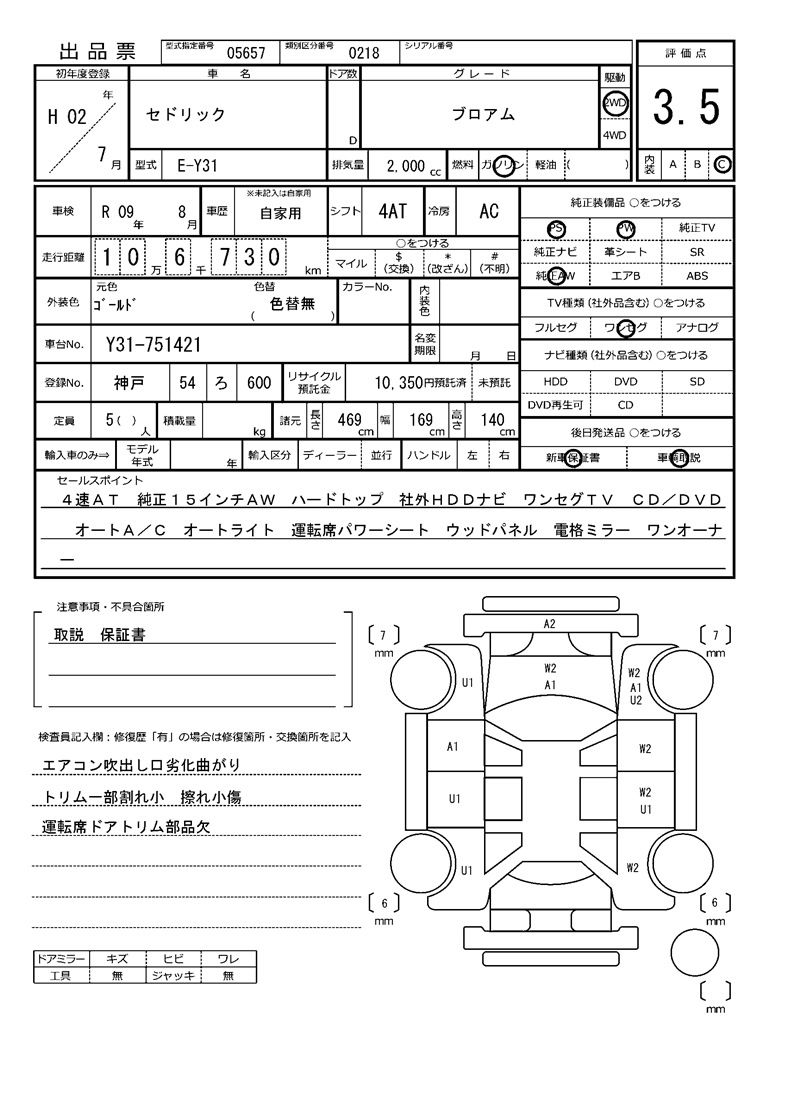 出品票 型式指定番号 05657 類別区分番号 0218 シリアル番号
評価点
3.5
内装 A B C
初年度登録 車名 ドア数 グレード 駆動
H 02 年 7 月
セドリック D ブロアム 2WD
4WD
型式 E-Y31 排気量 2,000 cc 燃料 ガソリン 軽油 ( )
車検 R 09 年 8 月 車歴 ※未記入は自家用 自家用 シフト 4AT 冷房 AC
走行距離 10 万 6 千 730 km ○をつける
マイル $(交換) *(改ざん) #(不明)
外装色 元色 ゴールド 色替 色替無 ( ) カラーNo. 内装色
車台No. Y31-751421 名変期限 月 日
登録No. 神戸 54 ろ 600 リサイクル預託金 10,350円預託済 未預託
定員 5( ) 人 積載量 kg 諸元 長さ 469 cm 幅 169 cm 高さ 140 cm
輸入車のみ⇒ モデル年式 年 輸入区分 ディーラー 並行 ハンドル 左 右
純正装備品 ○をつける
PS PW 純正TV
純正ナビ 革シート SR
純正AW エアB ABS
TV種類(社外品含む)○をつける
フルセグ ワンセグ アナログ
ナビ種類(社外品含む)○をつける
HDD DVD SD
DVD再生可 CD
後日発送品 ○をつける
新車保証書 車輌取説
セールスポイント
4速AT 純正15インチAW ハードトップ 社外HDDナビ ワンセグTV CD/DVD
オートA/C オートライト 運転席パワーシート ウッドパネル 電格ミラー ワンオーナ
ー
注意事項・不具合箇所
取説 保証書
検査員記入欄:修復歴「有」の場合は修復箇所・交換箇所を記入
エアコン吹出し口劣化曲がり
トリム一部割れ小 擦れ小傷
運転席ドアトリム部品欠
ドアミラー キズ ヒビ ワレ
工具 無 ジャッキ 無
A2
7 mm
7 mm
W2
A1
U1
W2
A1
U2
A1
W2
U1
W2
U1
U1
W2
6 mm
6 mm
mm